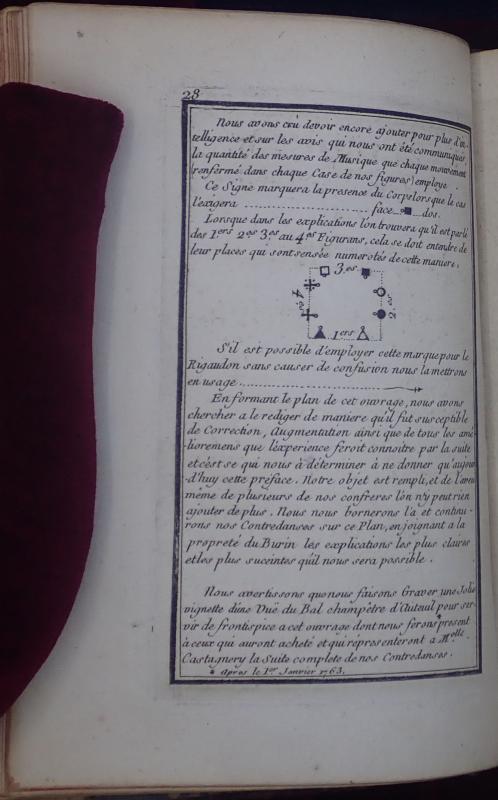 28
Nous avons crû devoir encore ajouter pour plus d'in
telligence et sur les avis qui nous ont été communiqués
la quantité des mesures de Musique que chaque mouvement
(renfermé dans chaque Case de nos figures) employe
Ce Signe marquera la presence du Corps lorsque le cas
l'exigera ........................... face dos.
Lorsque dans les explications l'on trouvera qu'il est parlé
des 1.ers 2.es 3.es au 4.es Figurans, cela se doit entendre de
leur places qui sont sensée numerotés de cette maniere.
3.es
4.es
2.es
1ers
S'il est possible d'employer cette marque pour le
Rigaudon sans causer de confusion nous la mettrons
en usage ................................
En formant le plan de cet ouvrage, nous avons
chercher a le rediger de maniere qu'il fut susceptible
de Correction, Augmentation ainsi que de tous les amé
-lioremens que l'experience feroit connoitre par la suite
et c'est se qui nous à déterminer à ne donner qu'aujour
-d'huy cette préface. Notre objet est rempli, et de l'aveu
même de plusieurs de nos confreres l'on n'y peut rien
ajouter de plus. Nous nous bornerons l'à et continu-
rons nos Contredanses sur ce Plan, en joignant a la
propreté du Burin les explications les plus claires
et les plus succintes qu'il nous sera possible.
Nous avertissons que nous faisons Graver une Jolie
vignette d'une Vuë du Bal champêtre d'Auteuil pour ser
vir de frontispice a cet ouvrage dont nous ferons present
à ceux qui auront acheté et qui représenteront a M.elle
Castagnery la Suite complete de nos Contredanses.
* Apres le 1.er Janvier 1763.